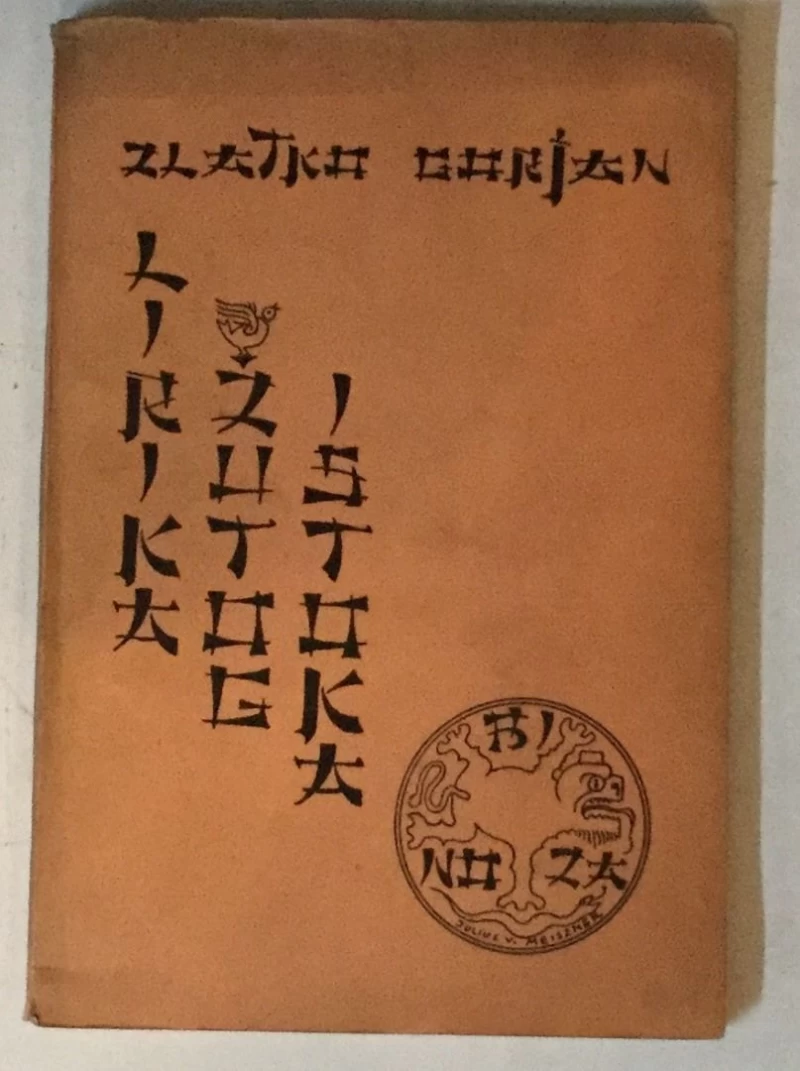 ZLATKO GORJAN
LIRIKA
ŽUTOG
ISTOKA
BI
NO ZA
JULIUS V. MEISZNER